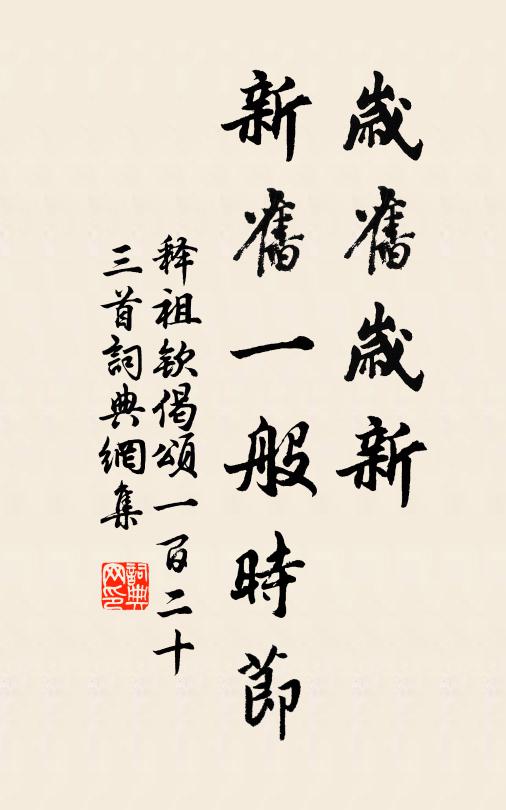 歲舊歲新
新舊一般時節
释祖钦偈頌一百二十
三首詞典網集
詞典
网印